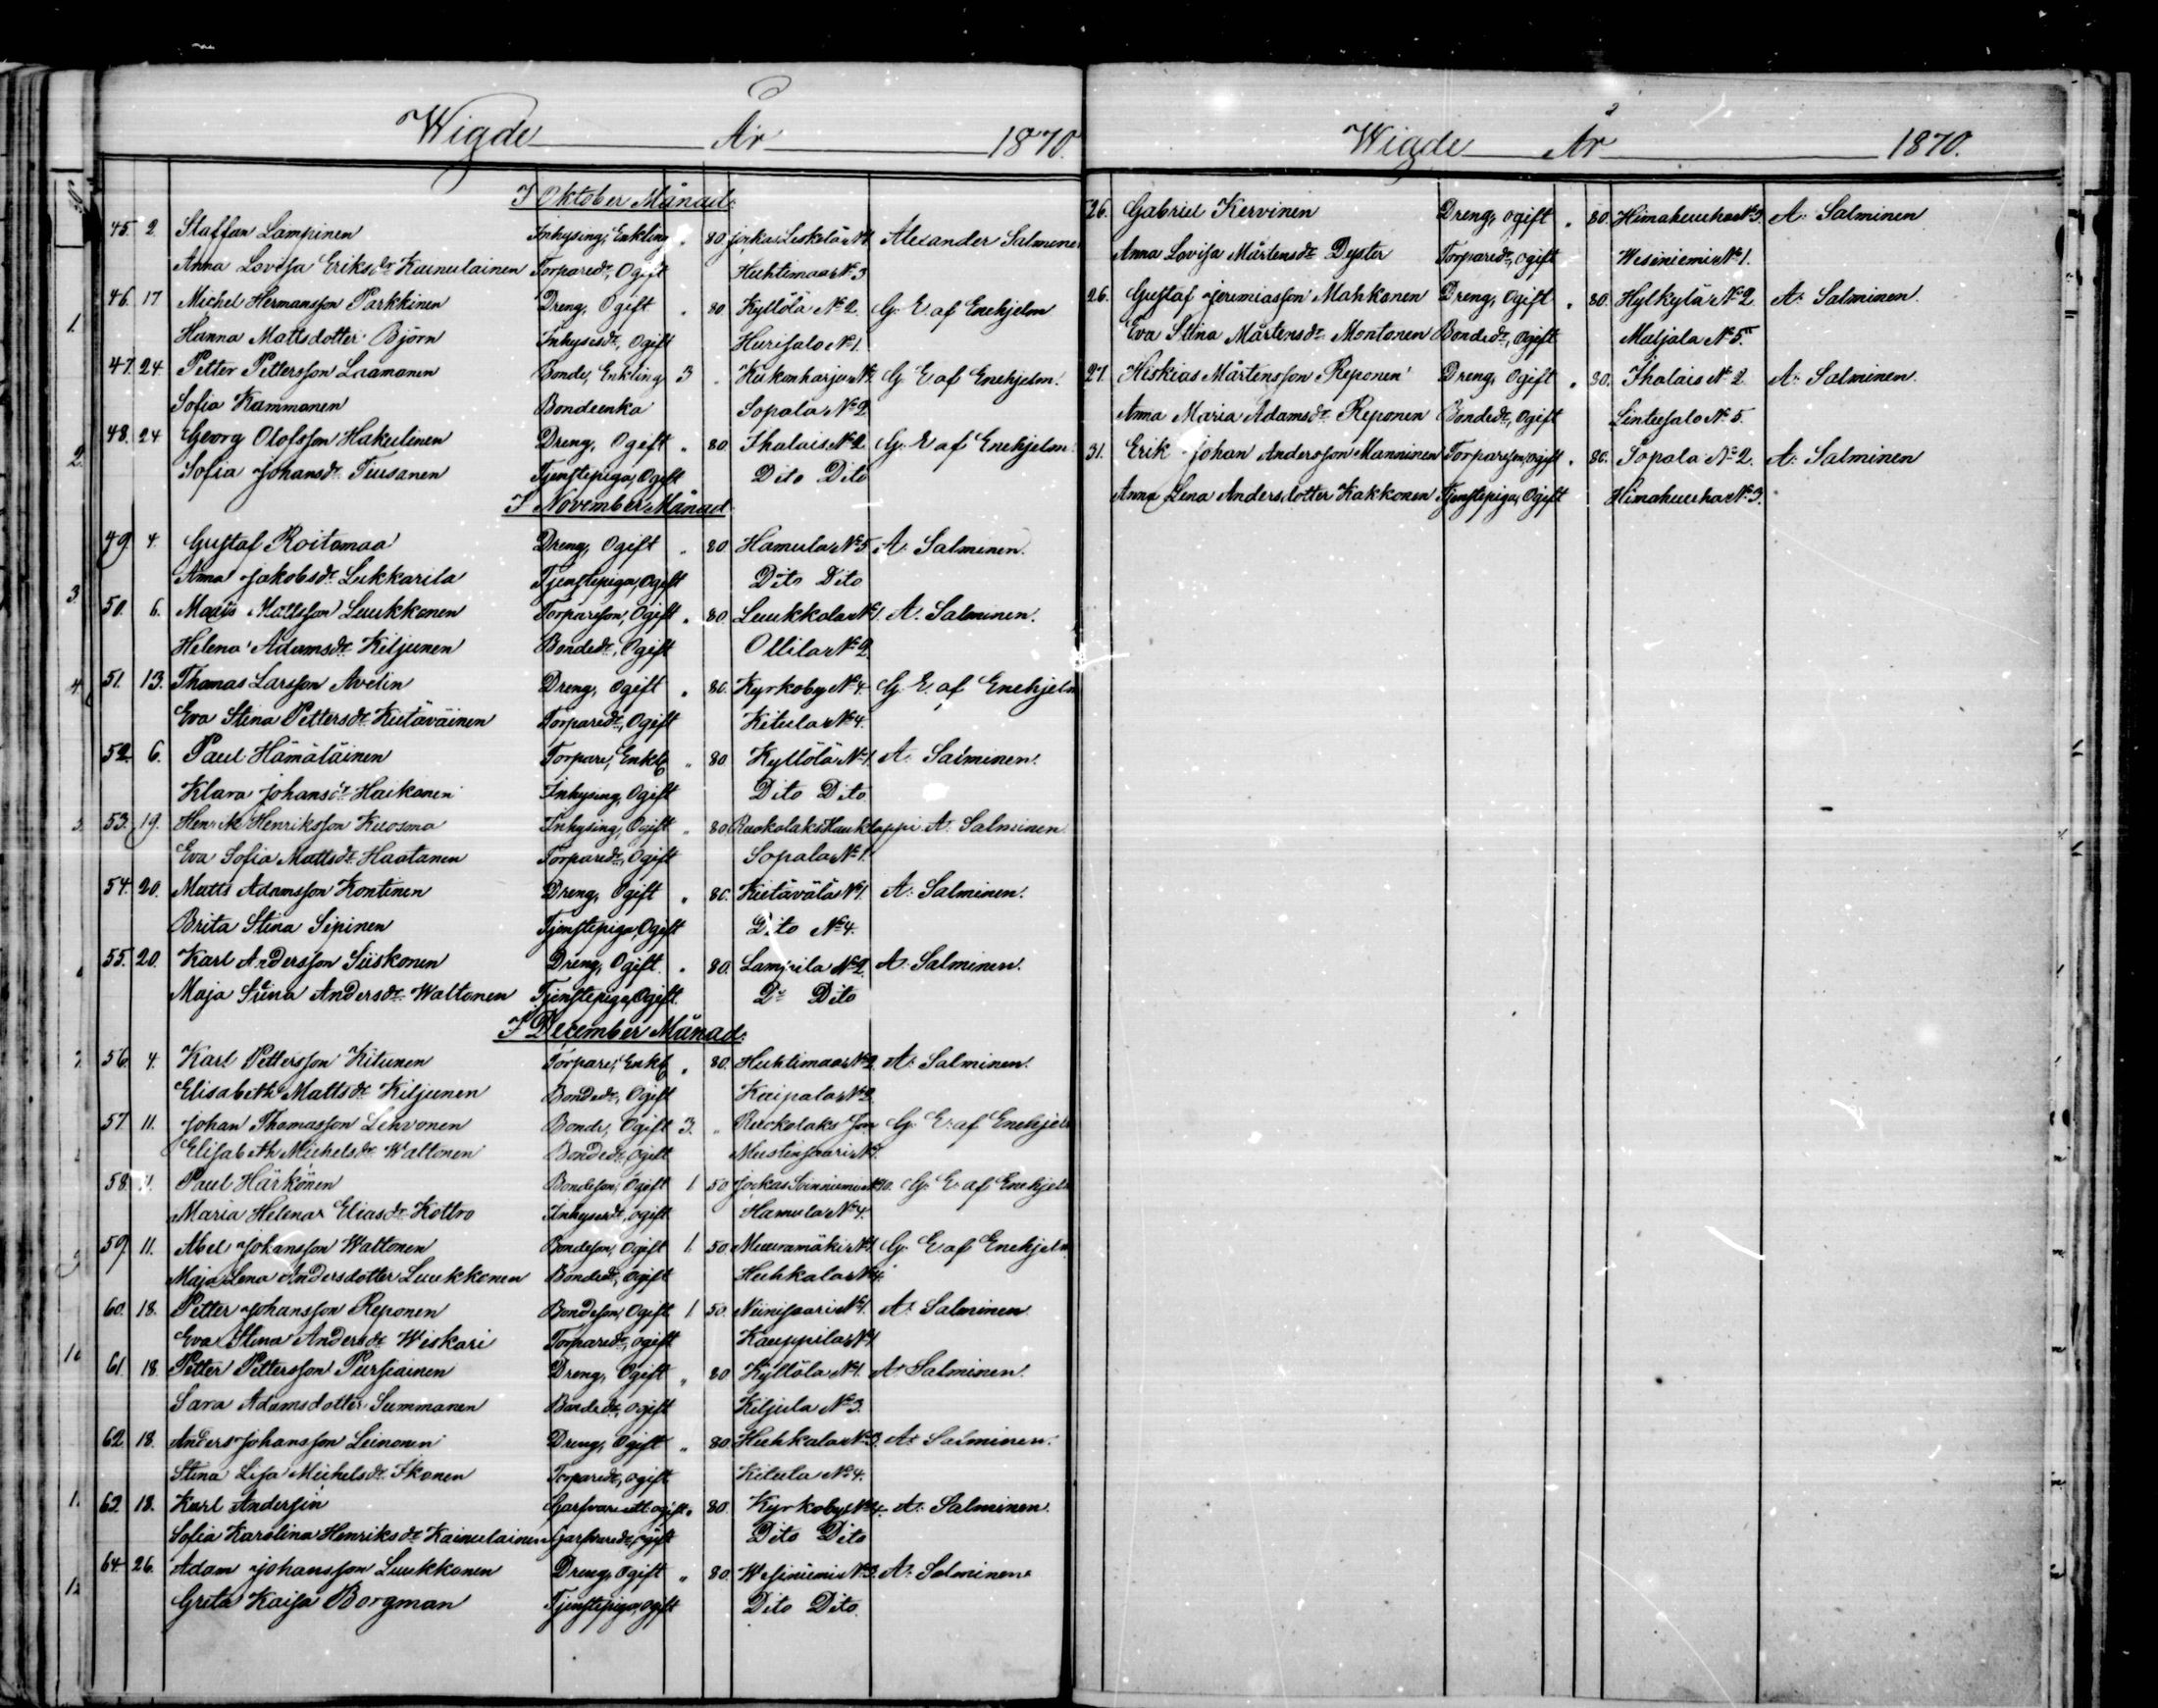 Wigde År 1870.
I Oktober Månad:
45. 2. Staffan Lampinen Inhysing, Enkling " 80. Alexander Salminen
Anna Lovisa Eriksdr Kainulainen Torparedr, Ogift Huhtimaa No 3
46. 17 Michel Hermansson Parkkinen Dreng, Ogift " 80. Kyllölä No 2. G. E. af Enehjelm
Hanna Mattsdotter Björn Inhysedr, Ogift Hurisalo No 1.
47. 24 Petter Pettersson Laamanen Bonde, Enkling 3 " Kukonharju No G. E. af Enehjelm.
Sofia Kammonen Bondeenka Sopala No 2
48. 24 Georg Olofsson Hakulinen Dreng, Ogift " 80. Ihalais No 2 G. E. af Enehjelm
Sofia Johansdr Tiusanen Tjenstepiga, Ogift Dito Dito
I November Månad
49 4. Gustaf Roitomaa Dreng, Ogift " 80. Hamula No 5 A. Salminen.
Anna Jakobsdr Lukkarila Tjenstepiga, Ogift Dito Dito
50. 6. Mattsson Luukkonen Torpareson, Ogift " 80. Luukkola No 1. A. Salminen.
Helena Adamsdr Kiljunen Bondedr, Ogift Ollila No 2.
51. 13. Thomas Larsson Avelin Dreng, Ogift " 80. Kyrkoby No 4. G. E. af Enehjelm
Eva Stina Pettersdr Kietäväinen Torparedr, Ogift Kitula No 4.
52. 6. Paul Hämäläinen Torpare, Enkl " 80. Kyllölä No 1. A. Salminen.
Klara Johansdr Haikonen Inhysing, Ogift Dito Dito
53. 19. Henrik Henriksson Kuosma Inhysing, Ogift " 80. Ruokolaks Haukloppi A. Salminen
Eva Sofia Mattsdr Haatanen Torparedr, Ogift Sopala No 1.
54. 20. Matts Adamsson Kontinen Dreng, Ogift " 80. Kietävälä No 1. A. Salminen.
Brita Stina Sipinen Tjenstepiga, Ogift Dito No 4.
55. 20. Karl Andersson Siiskonen Dreng, Ogift " 80. Lampila No 2 A. Salminen.
Maja Stina Andersdr Waltonen Tjenstepiga, Ogift Do Dito
I December Månad:
56. 4. Karl Pettersson Kitunen Torpare, Enkl " 80. Huhtimaa No 2. A. Salminen.
Elisabeth Mattsdr Kiljunen Bondedr, Ogift Kaipala No 2.
57 11. Johan Thomasson Lehvonen Bonde, Ogift 3. " Ruokolaks G. E. af Enehjelm
Elisabeth Michelsdr Waltonen Bondedr, Ogift Mustinsaari No 1.
58 11. Paul Härkönen Bondeson, Ogift 1 50. G. E. af Enehjelm
Maria Helena Eliasdr Kottro Inhysedr, ogift Hamula No 4.
59 11. Abel Johansson Waltonen Bondeson, Ogift 1. 50. Muuramäki No 1. G. E. af Enehjelm
Maja Lena Andersdotter Luukkonen Bondedr, Ogift Huhkala No 4.
60. 18. Petter Johansson Reponen Bondeson, Ogift 1 50. Niinisaari No 1. A. Salminen
Eva Stina Andersdr Wiskari Torparedr, ogift Kauppila No 1
61 18. Petter Pettersson Pursiainen Dreng, Ogift " 80 Kyllölä No 1. A. Salminen.
Sara Adamsdotter Summanen Bondedr, ogift Kiljula No 3.
62 18. Anders Johansson Leinonen Dreng, Ogift " 80. Huhkala No 3. A. Salminen.
Stina Lisa Michelsdr Ikonen Torparedr, ogift Kitula No 4.
62 18. Karl Andersin ogift " 80. Kyrkoby No 4. A. Salminen.
Sofia Karolina Henriksdr Kainulainen ogift Dito Dito
64. 26. Adam Johansson Luukkonen Dreng, Ogift " 80. Wesiniemi No 3. A. Salminen.
Greta Kaisa Borgman Tjenstepiga, ogift Dito Dito.
Wigde År 1870.
26. Gabriel Kervinen Dreng, ogift " 80. Himahuuha No 3. A. Salminen
Anna Lovisa Mårtensdr Dyster Torparedr, ogift Wesiniemi No 1.
26. Gustaf Jeremiasson Mahkonen Dreng, Ogift " 80. Hylkylä No 2. A. Salminen.
Eva Stina Mårtensdr Montonen Bondedr, Ogift Matjala No 5.
27. Hiskias Mårtensson Reponen Dreng, Ogift " 80. Ihalais No 2. A. Salminen.
Anna Maria Adamsdr Reponen Bondedr, Ogift Lintusalo No 5.
31. Erik Johan Andersson Manninen Torpareson, ogift " 80. Sopala No 2. A. Salminen
Anna Lena Andersdotter Kakkonen Tjenstepiga, Ogift Himahuuha No 3.